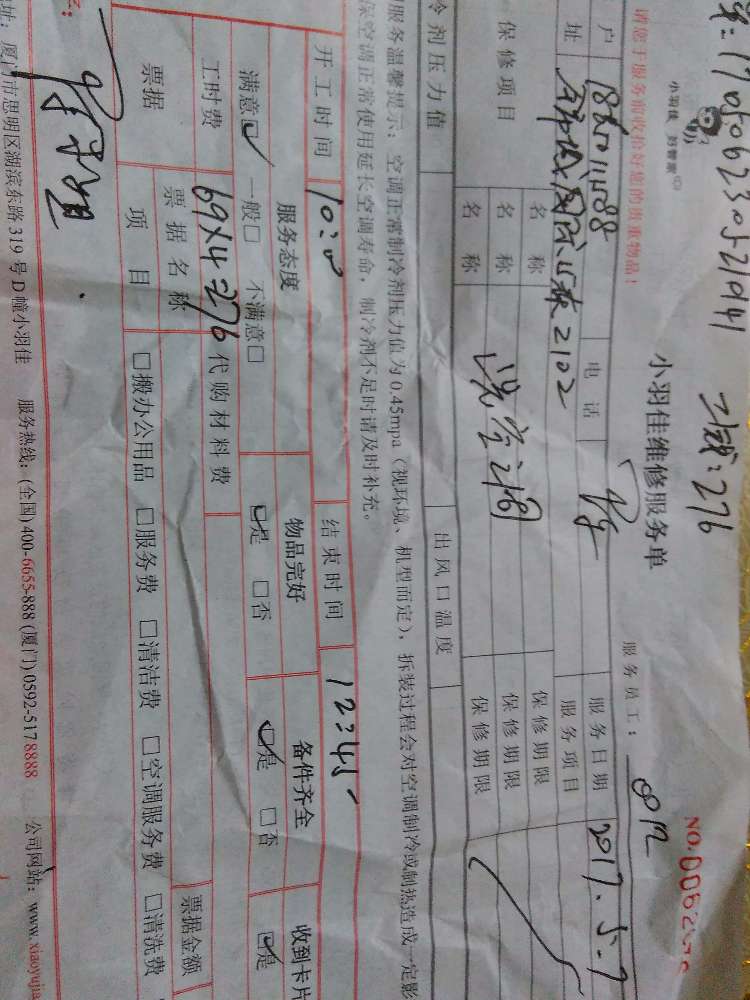 单:17050623052941
二减:276
小羽佳 苏管家
小羽佳维修服务单
NO.
请您于服务前收拾好您的贵重物品!
服务员工:
户 电话 服务日期 2017.5.7
址 2102 服务项目
保修项目 名称 保修期限
名称 洗空调 保修期限
名称 保修期限
冷剂压力值 出风口温度
服务温馨提示:空调正常制冷剂压力值为0.45mpa(视环境、机型而定),拆装过程会对空调制冷或制热造成一定影
保空调正常使用延长空调寿命,制冷剂不足时请及时补充。
开工时间 结束时间 12:45
服务态度 物品完好 备件齐全 收到卡片
满意☑ 一般□ 不满意□ ☑是 □否 ☑是 □否 ☑是
工时费 69X4=276 代购材料费
票据 票据名称 票据金额
项目 □搬办公用品 □服务费 □清洁费 □空调服务费 □清洗费
址:厦门市思明区湖滨东路319号D幢小羽佳 服务热线:(全国)400-6655-888 (厦门)0592-5178888 公司网站:www.xiaoyujia